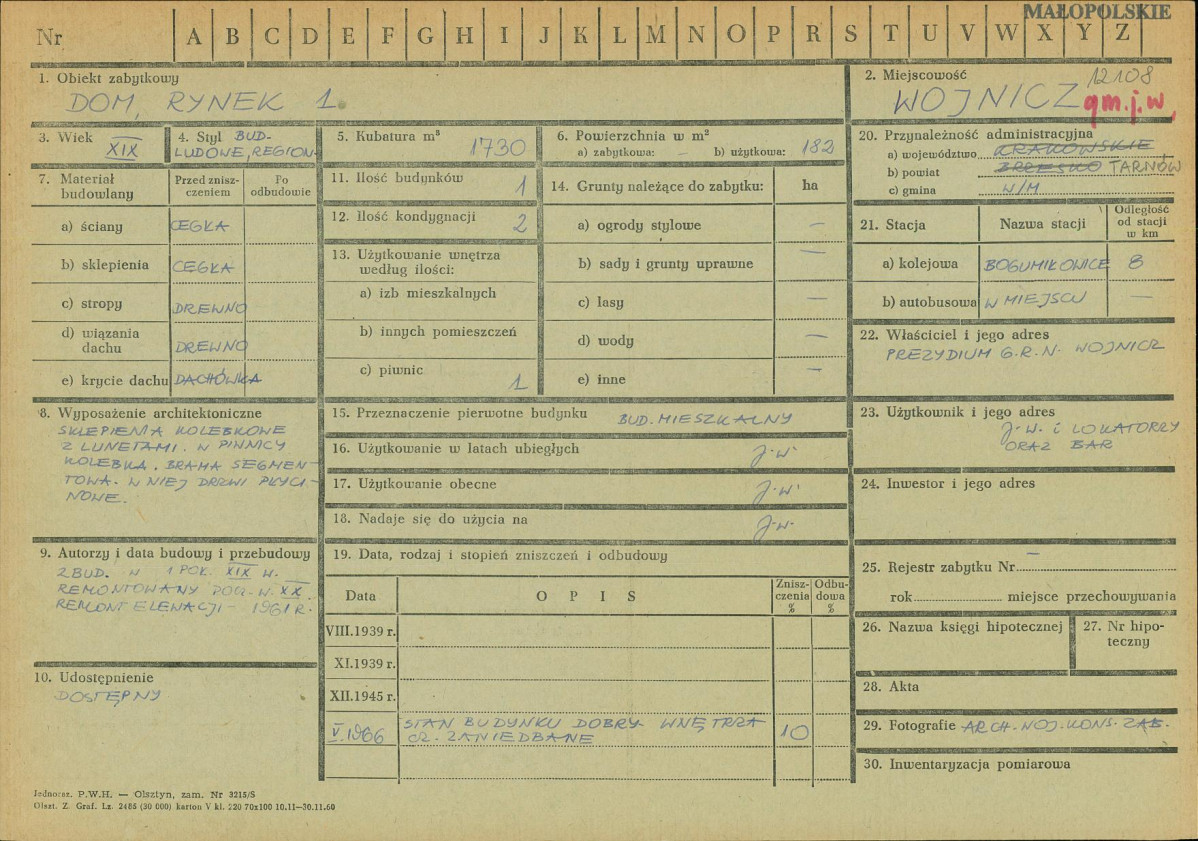 MAŁOPOLSKIE
Nr A B C D E F G H I J K L M N O P R S T U V W X Y Z
1. Obiekt zabytkowy
DOM, RYNEK 1.
2. Miejscowość
12108
WOJNICZ
gm.j.w.
3. Wiek
XIX
4. Styl BUD-
LUDOWE, REGION-
5. Kubatura m³
1730
6. Powierzchnia w m²
a) zabytkowa: – b) użytkowa: 182
7. Materiał budowlany
Przed zniszczeniem
Po odbudowie
a) ściany CEGŁA
b) sklepienia CEGŁA
c) stropy DREWNO
d) wiązania dachu DREWNO
e) krycie dachu DACHÓWKA
8. Wyposażenie architektoniczne
SKLEPIENIA KOLEBKOWE
Z LUNETAMI. W PIWNICY
KOLEBKA. BRAMA SEGMEN-
TOWA. W NIEJ DRZWI PŁYCI-
NOWE.
9. Autorzy i data budowy i przebudowy
ZBUD. W 1 POŁ. XIX W.
REMONTOWANY POCZ. W. XX.
REMONT ELEWACJI – 1961 R.
10. Udostępnienie
DOSTĘPNY
11. Ilość budynków 1
12. Ilość kondygnacji 2
13. Użytkowanie wnętrza
według ilości:
a) izb mieszkalnych
b) innych pomieszczeń
c) piwnic 1
14. Grunty należące do zabytku: ha
a) ogrody stylowe –
b) sady i grunty uprawne –
c) lasy –
d) wody –
e) inne –
15. Przeznaczenie pierwotne budynku BUD. MIESZKALNY
16. Użytkowanie w latach ubiegłych J.w.
17. Użytkowanie obecne J.w.
18. Nadaje się do użycia na J.w.
19. Data, rodzaj i stopień zniszczeń i odbudowy
Data OPIS Zniszczenia % Odbudowa %
VIII.1939 r.
XI.1939 r.
XII.1945 r.
V.1966 STAN BUDYNKU DOBRY– WNĘTRZA 10
CZ. ZANIEDBANE
20. Przynależność administracyjna
a) województwo KRAKOWSKIE
b) powiat BRZESKO TARNÓW
c) gmina W/M
21. Stacja Nazwa stacji Odległość od stacji w km
a) kolejowa BOGUMIŁOWICE 8
b) autobusowa W MIEJSCU –
22. Właściciel i jego adres
PREZYDIUM G.R.N. WOJNICZ
23. Użytkownik i jego adres
J.W. i LOKATORZY
ORAZ BAR
24. Inwestor i jego adres
–
25. Rejestr zabytku Nr
rok miejsce przechowywania
26. Nazwa księgi hipotecznej
27. Nr hipo-
teczny
28. Akta
29. Fotografie ARCH. WOJ. KONS. ZAB.
30. Inwentaryzacja pomiarowa
Jednoraz. P.W.H. — Olsztyn, zam. Nr 3215/S
Olszt. Z. Graf. Lz. 2485 (30 000) karton V kl. 220 70x100 10.11—30.11.60